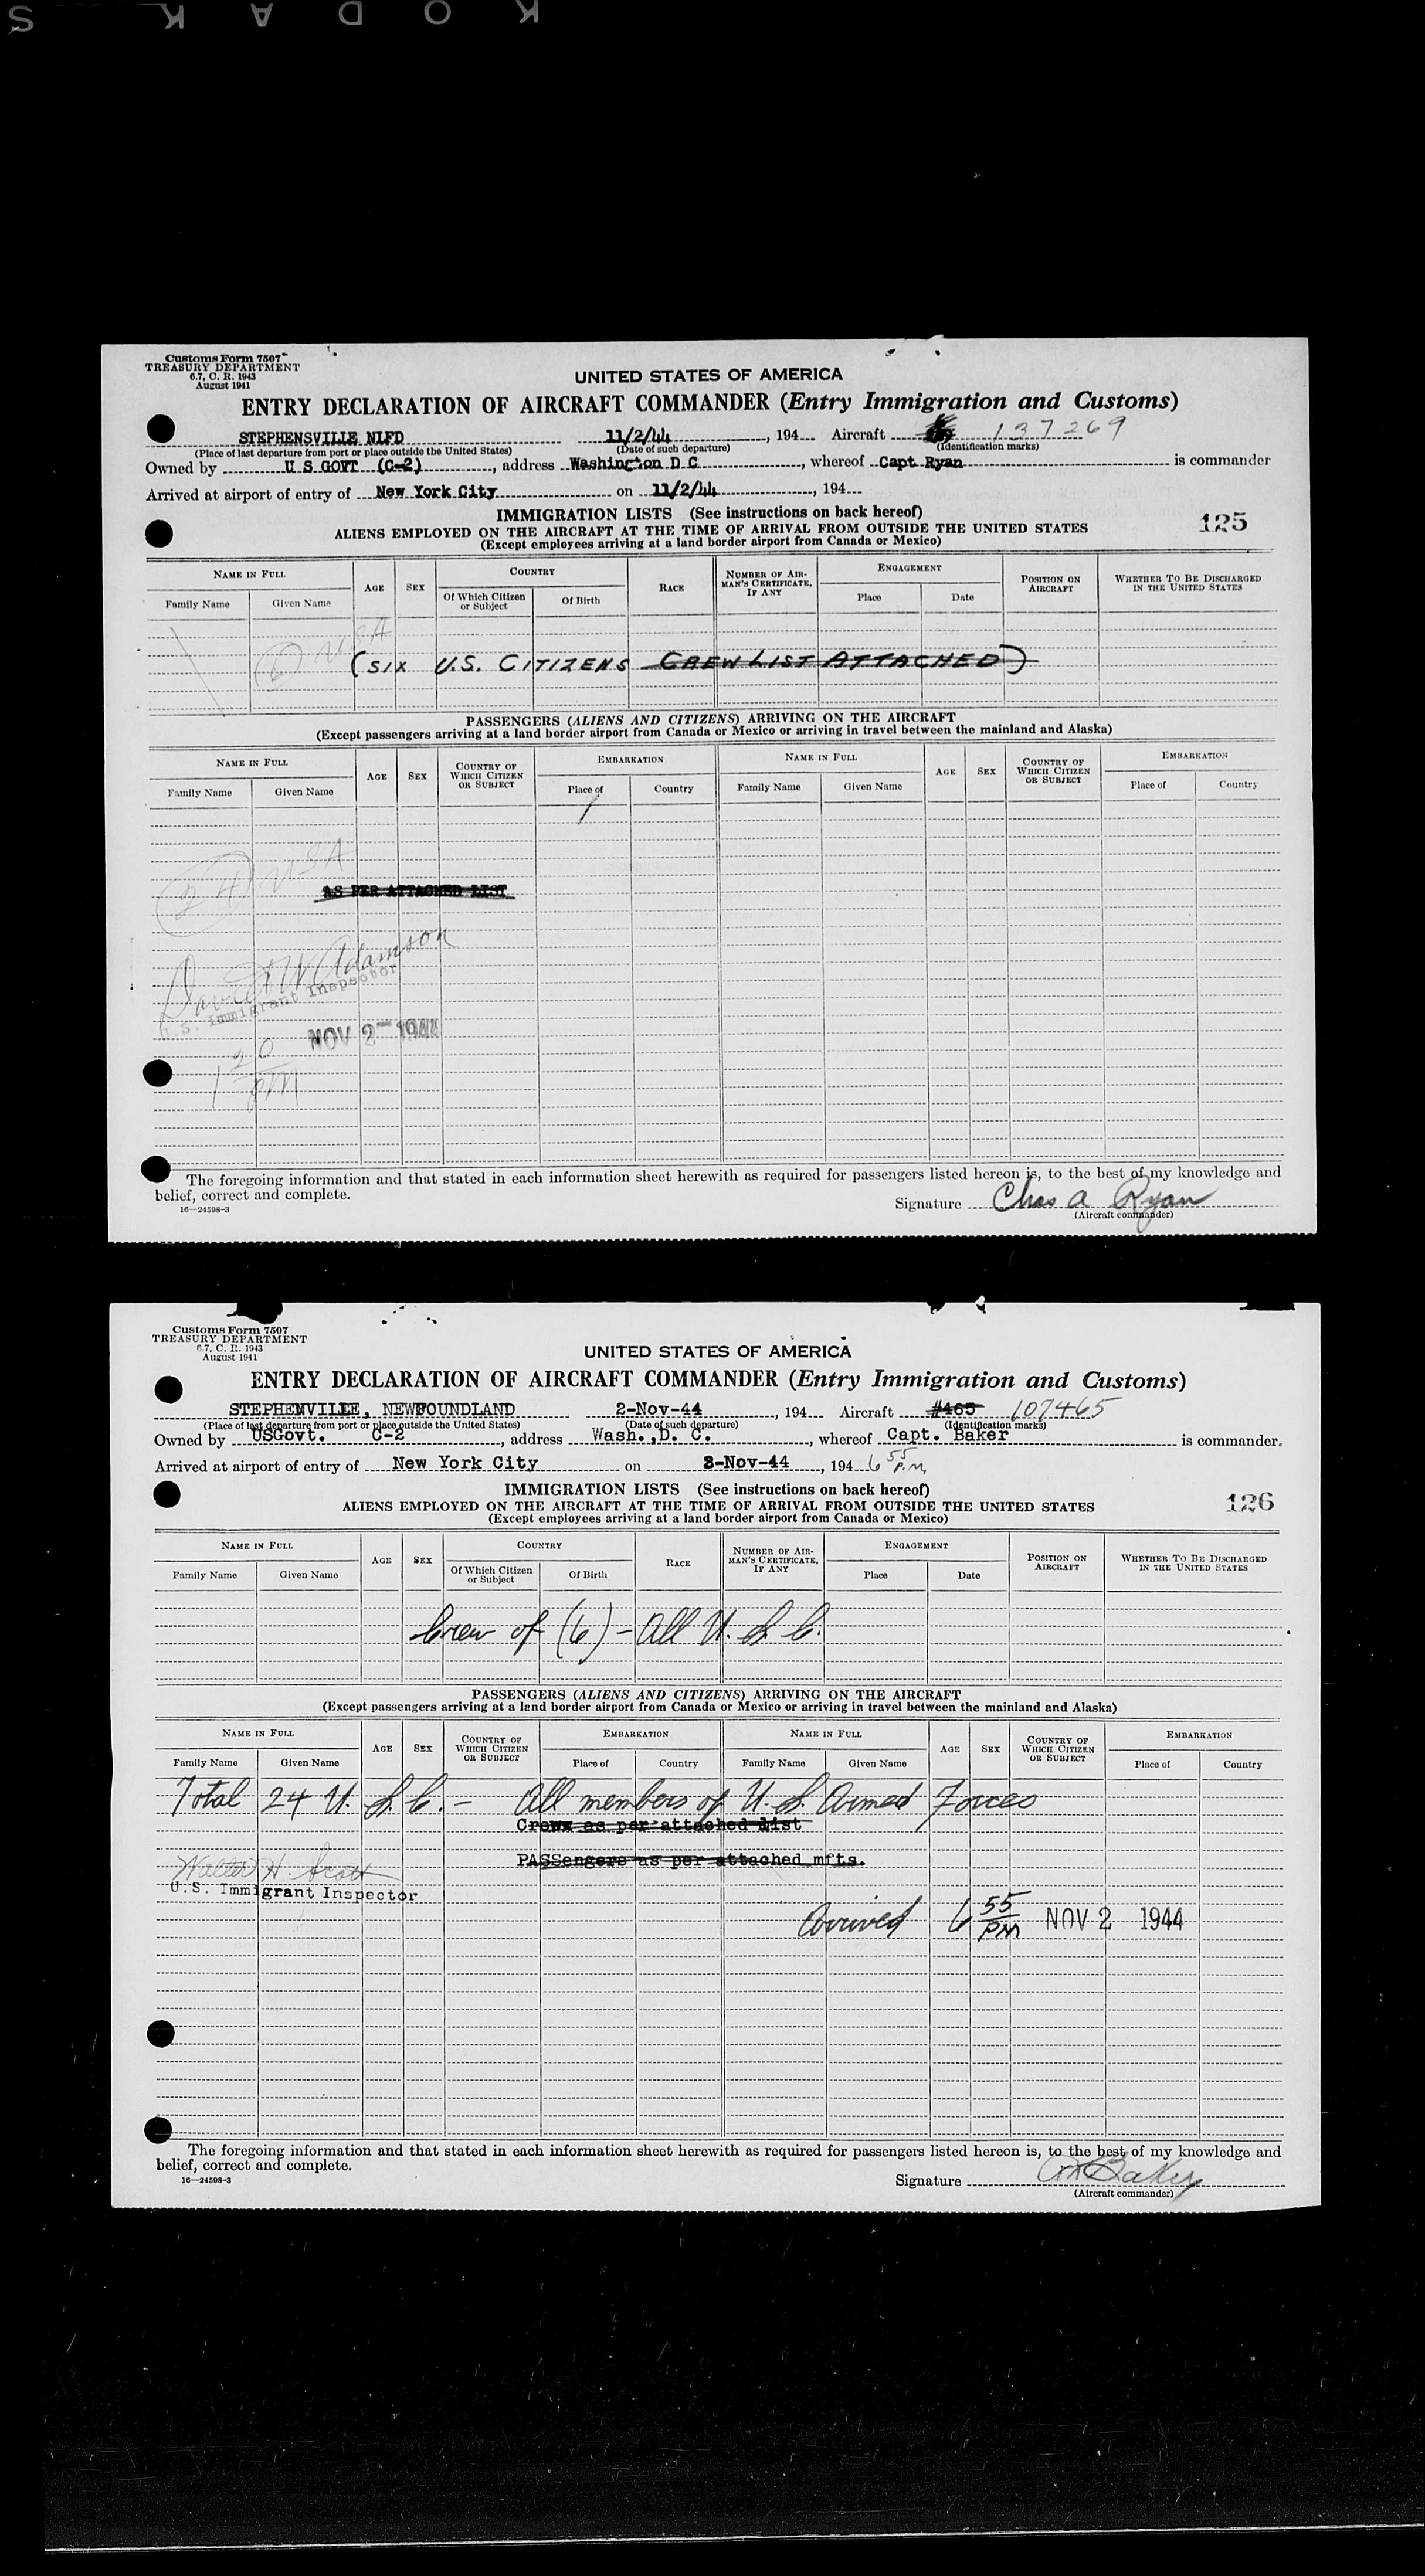 S K A D O K
Customs Form 7507
TREASURY DEPARTMENT
6.7, C. R. 1943
August 1941
UNITED STATES OF AMERICA
ENTRY DECLARATION OF AIRCRAFT COMMANDER (Entry Immigration and Customs)
STEPHENSVILLE NLFD 11/2/44, 194 Aircraft 137269
(Place of last departure from port or place outside the United States) (Date of such departure) (Identification marks)
Owned by U S GOVT (C-2), address Washington D C, whereof Capt Ryan is commander
Arrived at airport of entry of New York City on 11/2/44, 194
IMMIGRATION LISTS (See instructions on back hereof)
125
ALIENS EMPLOYED ON THE AIRCRAFT AT THE TIME OF ARRIVAL FROM OUTSIDE THE UNITED STATES
(Except employees arriving at a land border airport from Canada or Mexico)
NAME IN FULL AGE SEX COUNTRY RACE NUMBER OF AIRMAN'S CERTIFICATE, IF ANY ENGAGEMENT POSITION ON AIRCRAFT WHETHER TO BE DISCHARGED IN THE UNITED STATES
Family Name Given Name Of Which Citizen or Subject Of Birth Place Date
(6) USA
(SIX U.S. CITIZENS CREW LIST ATTACHED)
PASSENGERS (ALIENS AND CITIZENS) ARRIVING ON THE AIRCRAFT
(Except passengers arriving at a land border airport from Canada or Mexico or arriving in travel between the mainland and Alaska)
NAME IN FULL AGE SEX COUNTRY OF WHICH CITIZEN OR SUBJECT EMBARKATION NAME IN FULL AGE SEX COUNTRY OF WHICH CITIZEN OR SUBJECT EMBARKATION
Family Name Given Name Place of Country Family Name Given Name Place of Country
24 USA
AS PER ATTACHED LIST
David W Adamson
U.S. Immigrant Inspector
NOV 2 1944
1 20 PM
The foregoing information and that stated in each information sheet herewith as required for passengers listed hereon is, to the best of my knowledge and
belief, correct and complete.
Signature Chas A Ryan
16—24598-3
(Aircraft commander)
Customs Form 7507
TREASURY DEPARTMENT
6.7, C. R. 1943
August 1941
UNITED STATES OF AMERICA
ENTRY DECLARATION OF AIRCRAFT COMMANDER (Entry Immigration and Customs)
STEPHENVILLE, NEWFOUNDLAND 2-Nov-44, 194 Aircraft #465 107465
(Place of last departure from port or place outside the United States) (Date of such departure) (Identification marks)
Owned by USGovt. C-2, address Wash.,D. C., whereof Capt. Baker is commander.
Arrived at airport of entry of New York City on 2-Nov-44, 194 6 55 P.M.
IMMIGRATION LISTS (See instructions on back hereof)
126
ALIENS EMPLOYED ON THE AIRCRAFT AT THE TIME OF ARRIVAL FROM OUTSIDE THE UNITED STATES
(Except employees arriving at a land border airport from Canada or Mexico)
NAME IN FULL AGE SEX COUNTRY RACE NUMBER OF AIRMAN'S CERTIFICATE, IF ANY ENGAGEMENT POSITION ON AIRCRAFT WHETHER TO BE DISCHARGED IN THE UNITED STATES
Family Name Given Name Of Which Citizen or Subject Of Birth Place Date
Crew of (6) - All U.S.C.
PASSENGERS (ALIENS AND CITIZENS) ARRIVING ON THE AIRCRAFT
(Except passengers arriving at a land border airport from Canada or Mexico or arriving in travel between the mainland and Alaska)
NAME IN FULL AGE SEX COUNTRY OF WHICH CITIZEN OR SUBJECT EMBARKATION NAME IN FULL AGE SEX COUNTRY OF WHICH CITIZEN OR SUBJECT EMBARKATION
Family Name Given Name Place of Country Family Name Given Name Place of Country
Total 24 U.S.C. - All members of U.S. Armed Forces
Crewx as per attached list
PASSengers as per attached mfts.
Walter H. Scott
U.S. Immigrant Inspector
Arrived 6 55 PM NOV 2 1944
The foregoing information and that stated in each information sheet herewith as required for passengers listed hereon is, to the best of my knowledge and
belief, correct and complete.
16—24598-3
Signature Baker
(Aircraft commander)